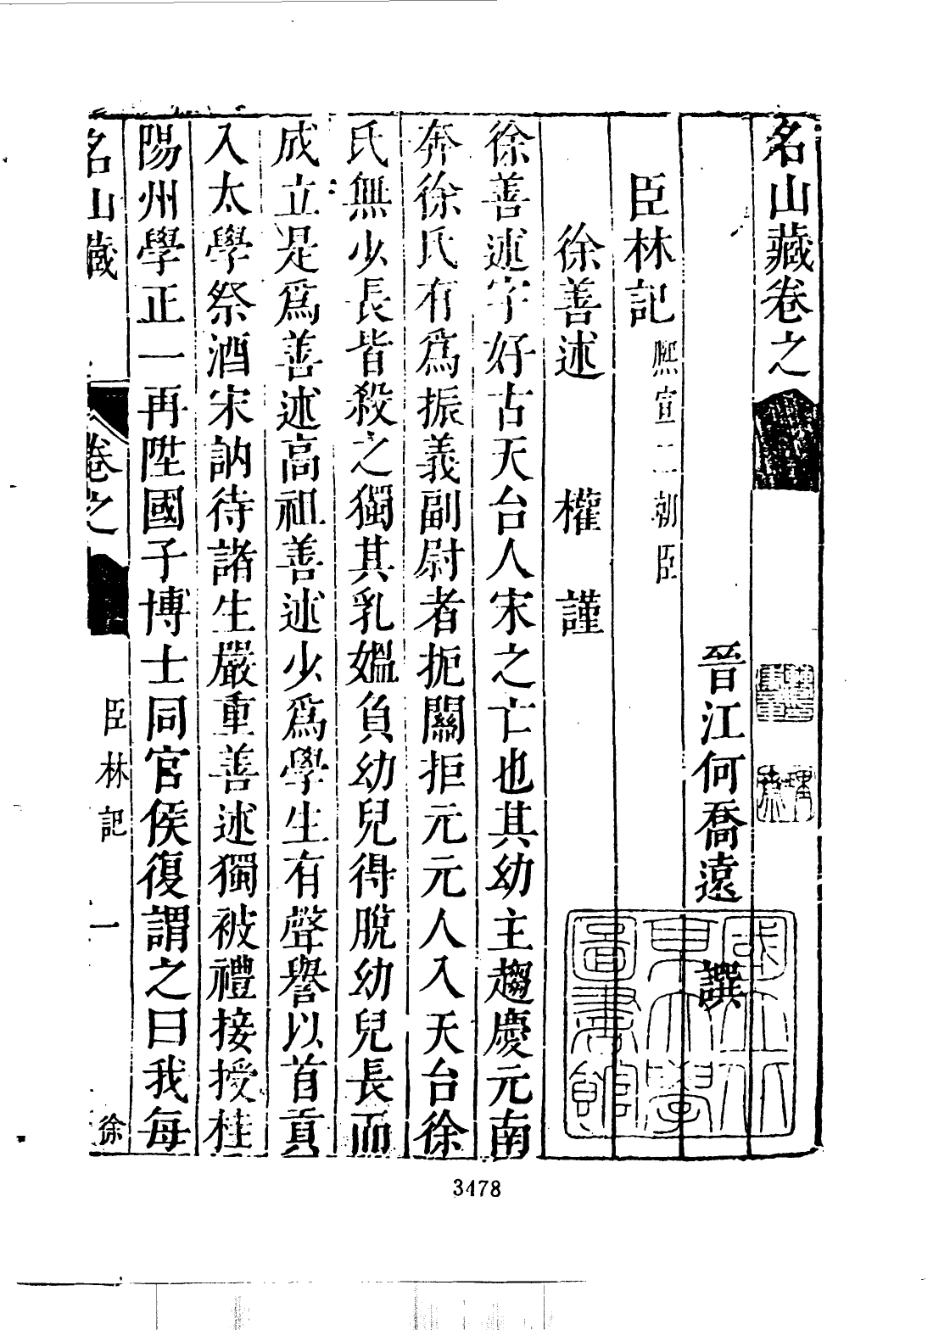 名山藏卷之
晉江何喬遠 譔
臣林記 熈宣二朝臣
徐善述 權謹
徐善述字好古天台人宋之亡也其幼主趨慶元南
奔徐氏有爲振義副尉者扼關拒元元人入天台徐
氏無少長皆殺之獨其乳媼負幼兒得脫幼兒長而
成立是爲善述高祖善述少爲學生有聲譽以首貢
入太學祭酒宋訥待諸生嚴重善述獨被禮接授桂
陽州學正一再陞國子博士同官侯復謂之曰我每
名山藏 卷之 臣林記 一 徐
國立北平東大學圖書館
3478